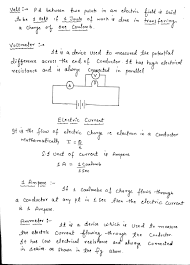 Volt :- P.d between two point in an electric field is said
to be 1 Volt if 1 Joule of work is done in transferring
a charge of one Coulomb.
Voltmeter :- It is a device used to measured the potential
difference across the end of Conductor. It has high electrical
resistance and is always connected in parallel
V
A
Electric Current
It is the flow of electric charge in electron in a Conductor
Mathematically I = Q/t
S.I unit of current is Ampere
1A = 1 Coulomb / 1 Sec
1 Ampere :-
If 1 coulombs of charge flows through
a Conductor at any pt in 1 sec then the electric current
is 1 Ampere
Ammeter :- It is a device which is used to measure
the electric Current flowing through the Conductor
It has low electrical resistance and always connected
in series as shown in the fig above